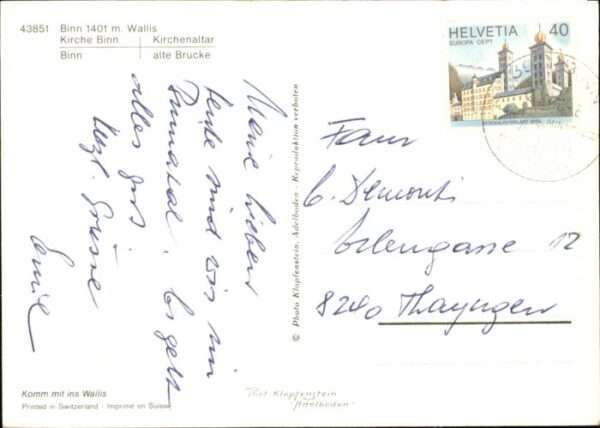 43851 Binn 1401 m. Wallis
Kirche Binn Kirchenaltar
Binn alte Brücke
HELVETIA 40
EUROPA CEPT
Meine Lieben
heute sind wir im
Binnatal. Es geht
alles gut
Herzl. Grüsse
Emil
© Photo Klopfenstein, Adelboden - Reproduktion verboten
Frau
C. Demonti
Erlengasse 12
8240 Thayngen
Komm mit ins Wallis
Printed in Switzerland - Imprimé en Suisse
Phot Klopfenstein
"Adelboden"